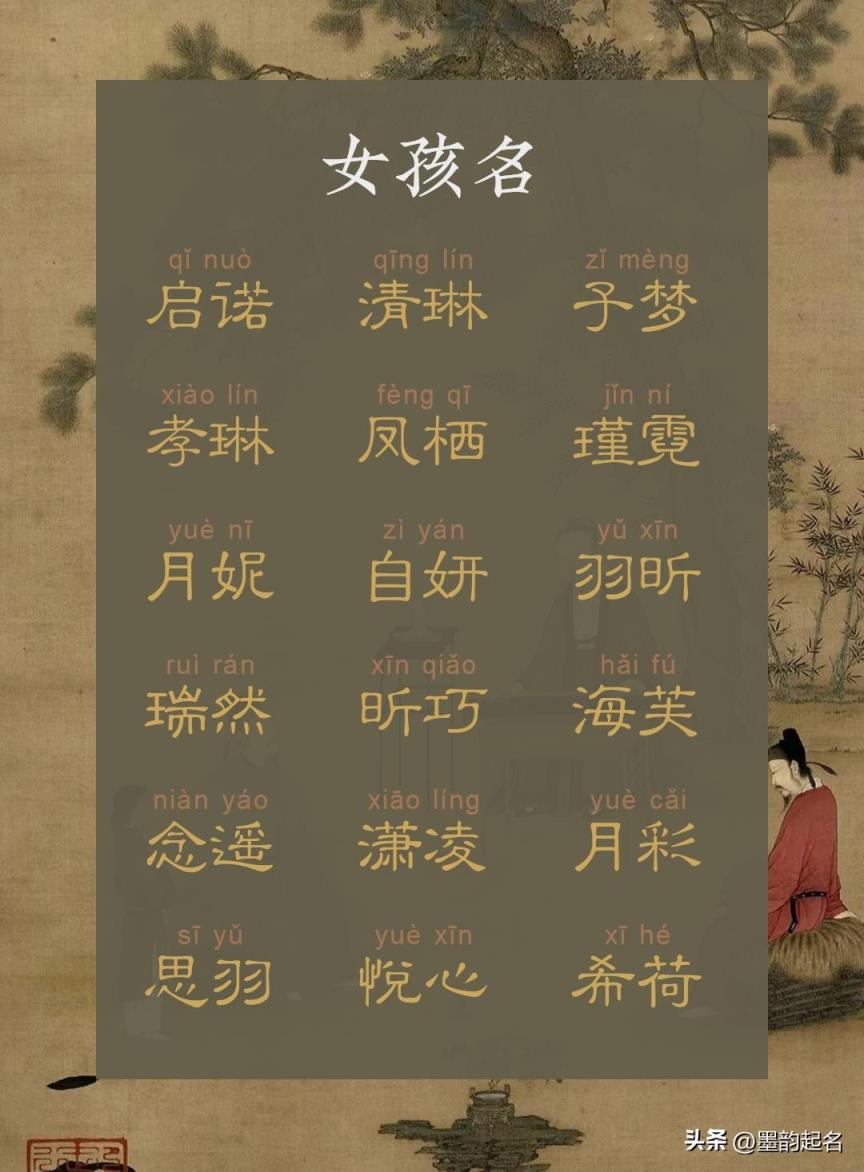 女孩名
qǐ nuò qīng lín zǐ mèng
启诺 清琳 子梦
xiào lín fèng qī jǐn ní
孝琳 凤栖 瑾霓
yuè nī zì yán yǔ xīn
月妮 自妍 羽昕
ruì rán xīn qiǎo hǎi fú
瑞然 昕巧 海芙
niàn yáo xiāo líng yuè cǎi
念遥 潇凌 月彩
sī yǔ yuè xīn xī hé
思羽 悦心 希荷
头条 @墨韵起名